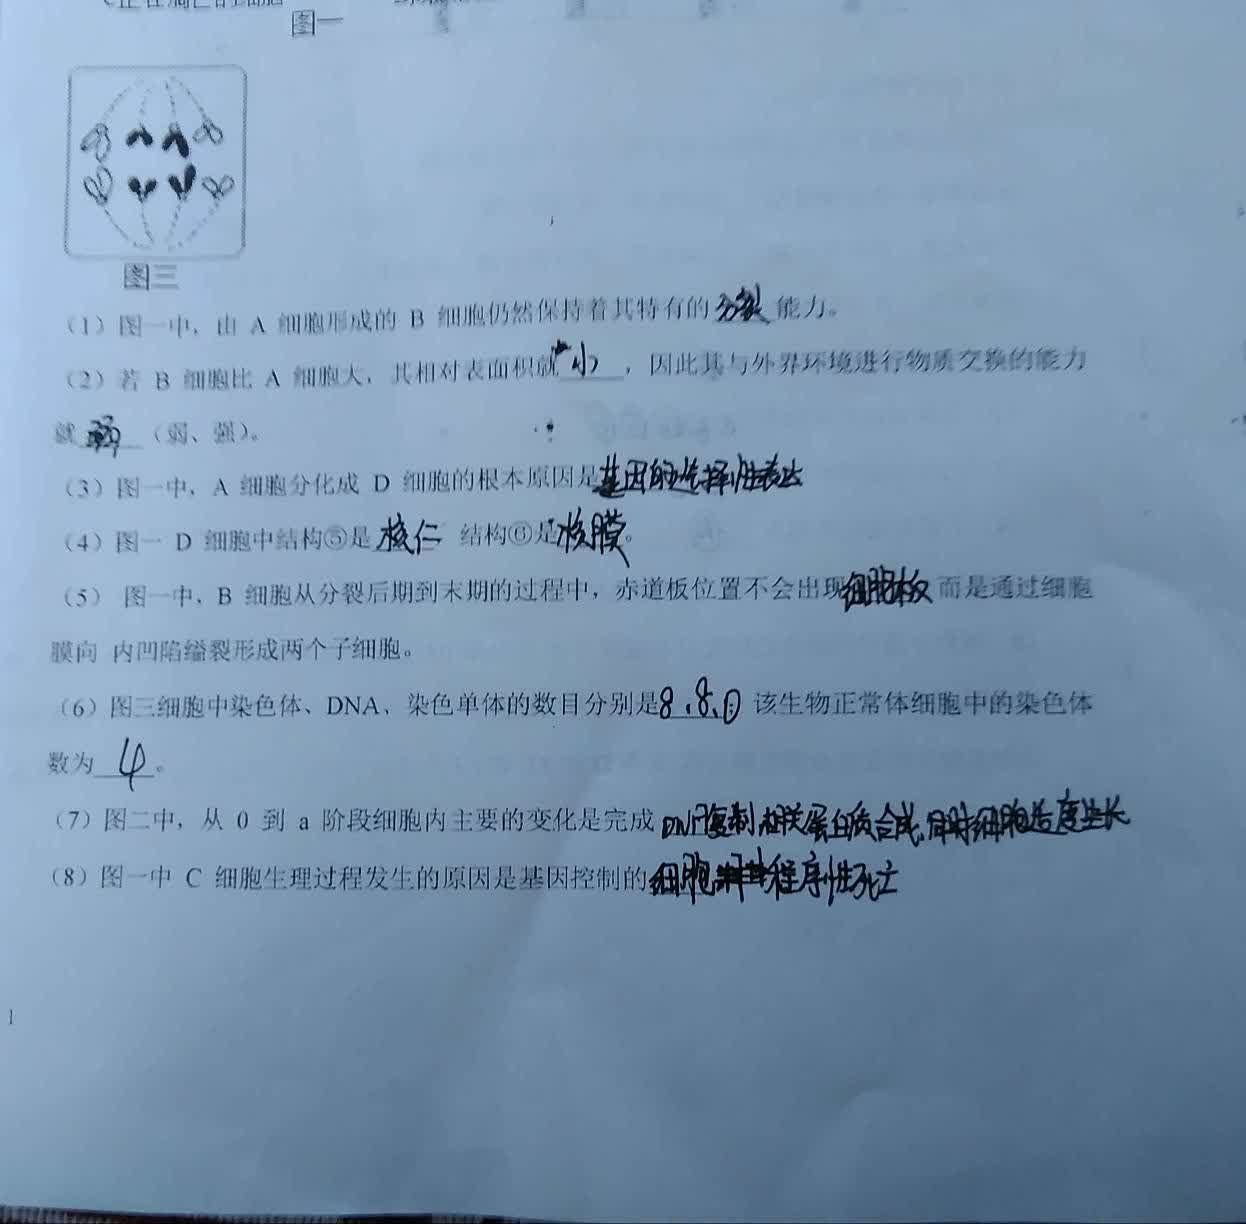 图一
图三
（1）图一中，由 A 细胞形成的 B 细胞仍然保持着其特有的分裂能力。
（2）若 B 细胞比 A 细胞大，其相对表面积就小，因此其与外界环境进行物质交换的能力
就弱（弱、强）。
（3）图一中，A 细胞分化成 D 细胞的根本原因是基因的选择性表达
（4）图一 D 细胞中结构⑤是核仁 结构⑥是核膜。
（5） 图一中，B 细胞从分裂后期到末期的过程中，赤道板位置不会出现细胞板 而是通过细胞
膜向 内凹陷缢裂形成两个子细胞。
（6）图三细胞中染色体、DNA、染色单体的数目分别是8、8、0 该生物正常体细胞中的染色体
数为 4 。
（7）图二中，从 0 到 a 阶段细胞内主要的变化是完成 DNA复制相关蛋白质合成，同时细胞适度生长
（8）图一中 C 细胞生理过程发生的原因是基因控制的细胞程序性死亡
1